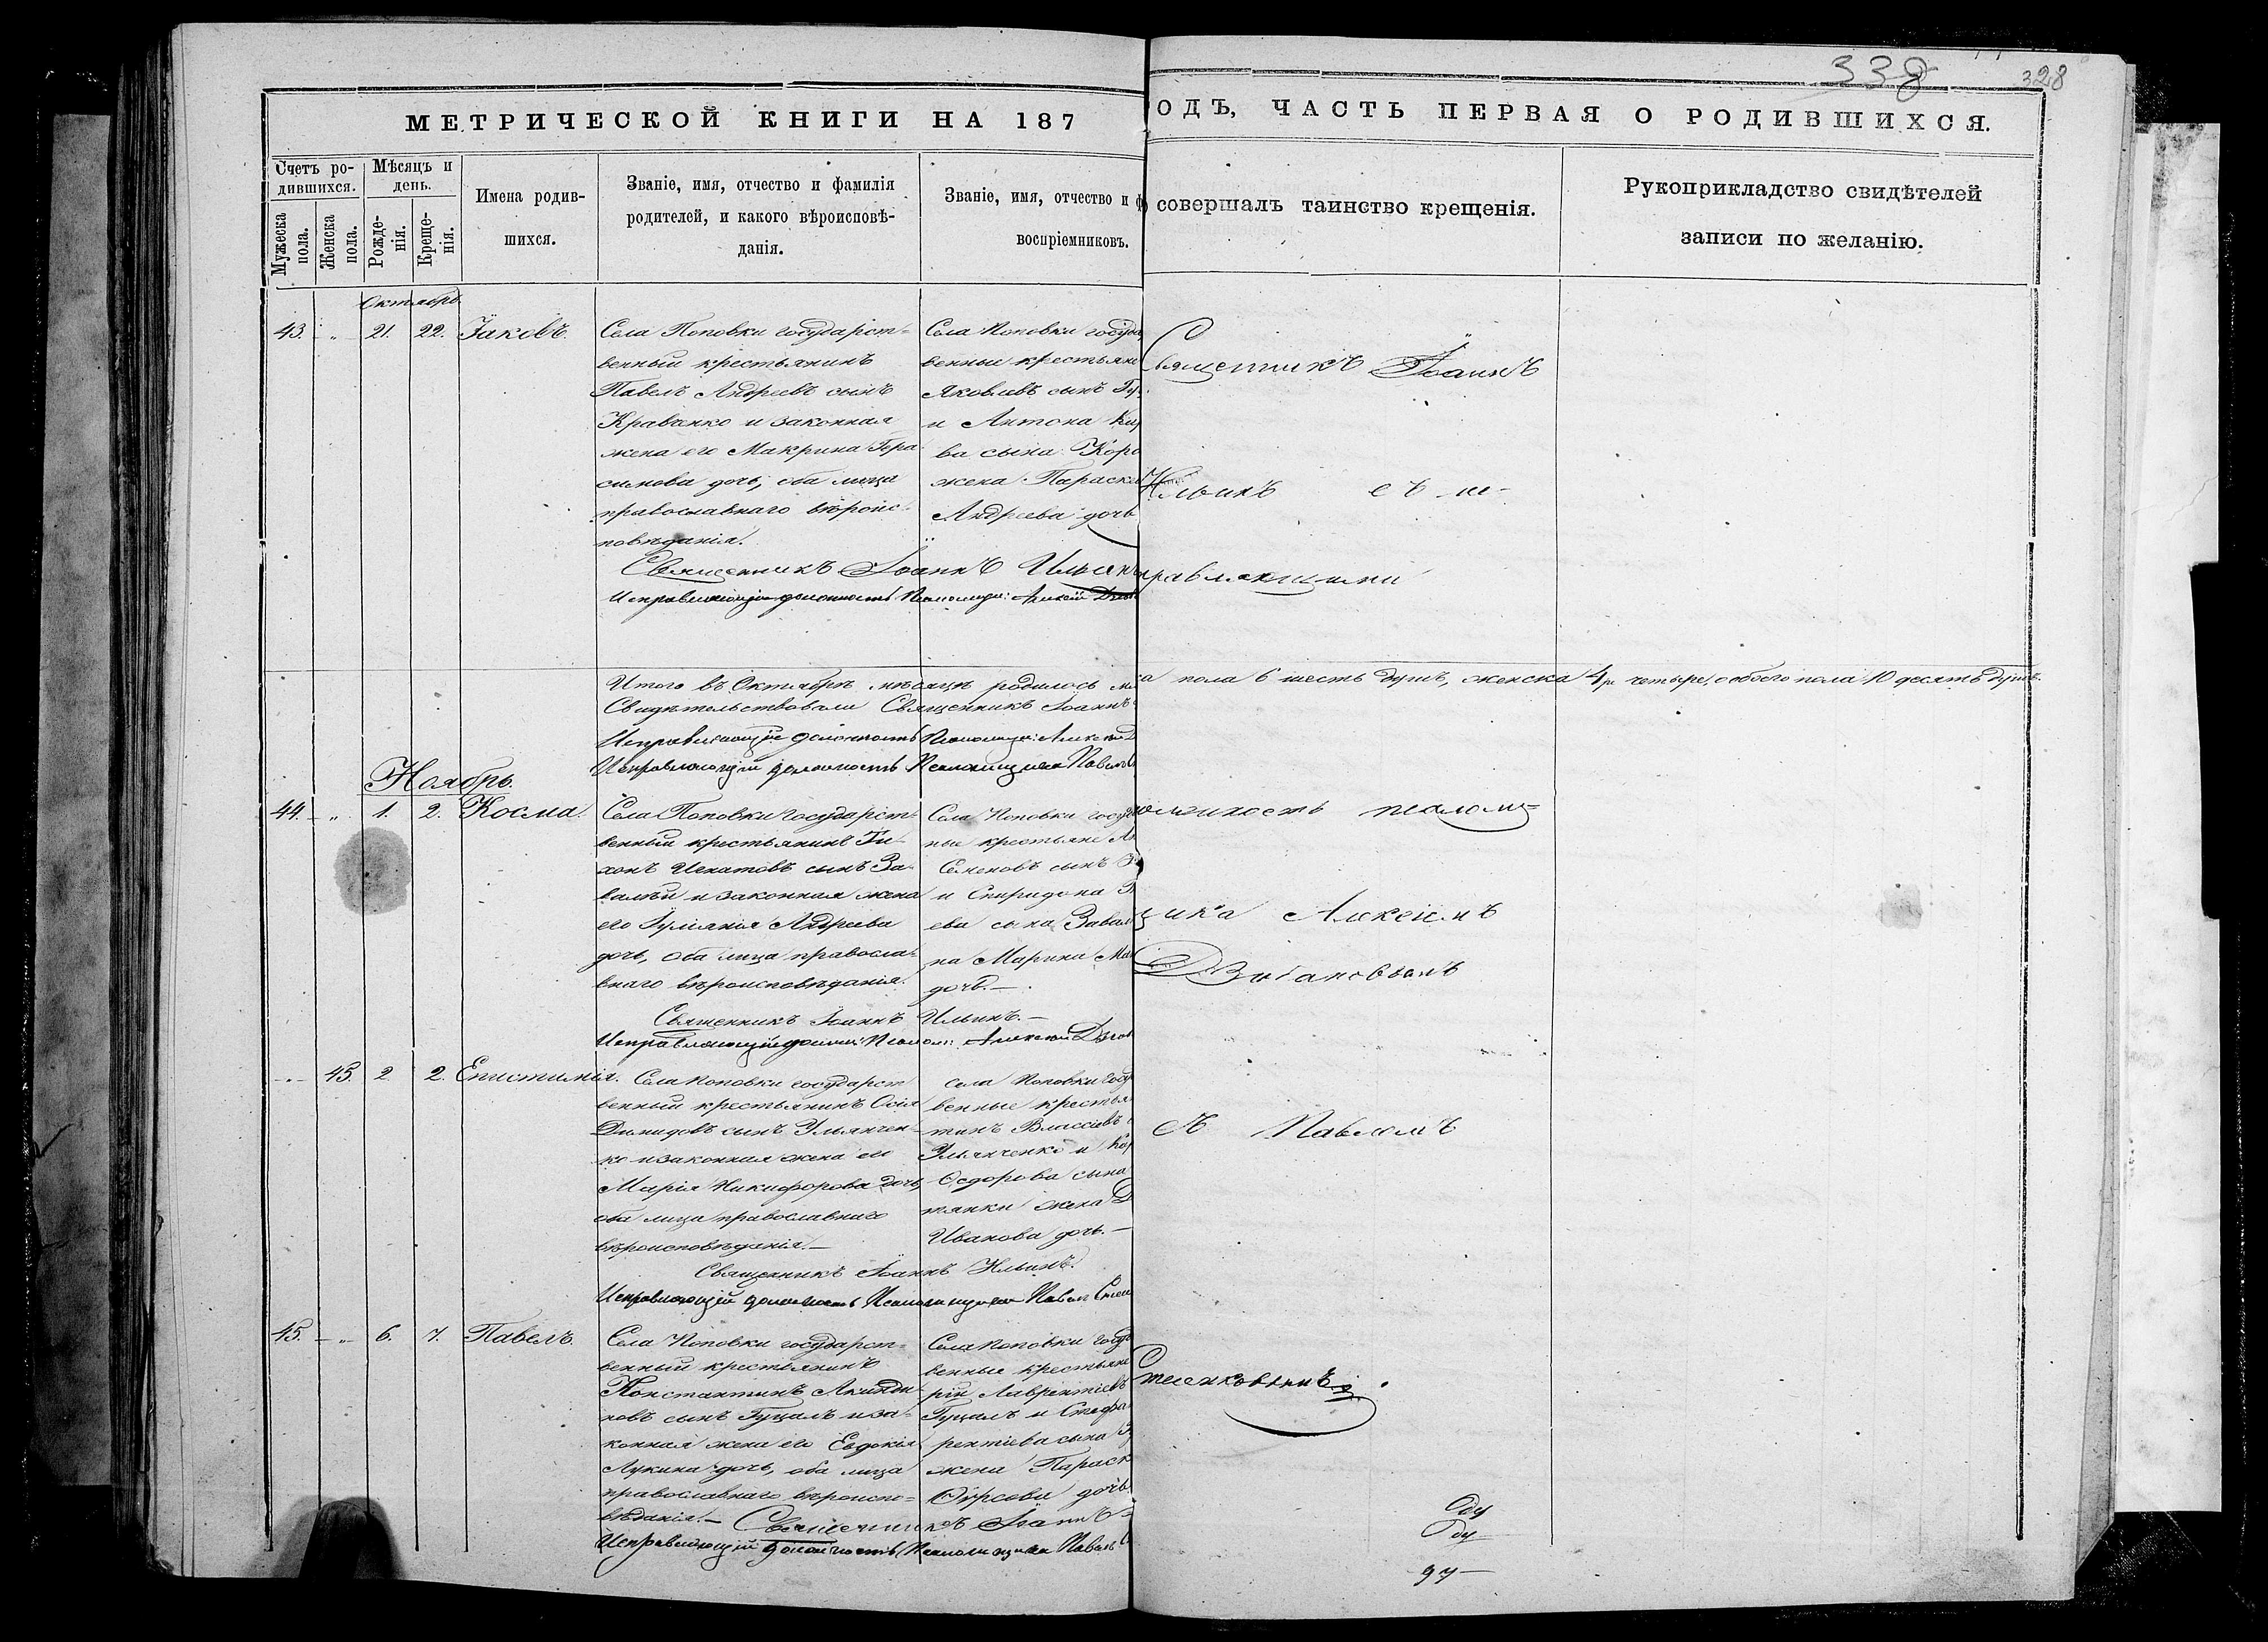 338 328
МЕТРИЧЕСКОЙ КНИГИ НА 187
ОДЪ, ЧАСТЬ ПЕРВАЯ О РОДИВШИХСЯ.
Счетъ ро-
дившихся.
Мужеска
пола.
Женска
пола.
Мѣсяцъ и
день.
Рожде-
нія.
Креще-
нія.
Имена родив-
шихся.
Званіе, имя, отчество и фамилія
родителей, и какого вѣроисповѣ-
данія.
Званіе, имя, отчество и ф
воспріемниковъ.
совершалъ таинство крещенія.
Рукоприкладство свидѣтелей
записи по желанію.
Октябрь
43. „ 21. 22. Іаковъ.
Села Поповки государст-
венный крестьянинъ
Павелъ Андреевъ сынъ
Кравченко и законная
жена его Макрина Гера
симова дочь, оба лица
православнаго вѣроис-
повѣданія.
Села Поповки госуда
венные крестьяне
Яковлевъ сынъ
и Антона
ва сына
жена Параске
Андреева дочь
Священникъ Іоаннъ Ильинъ
Исправляющій должность Псаломщ: Алексій
Священникъ Іоаннъ
Ильинъ съ ис-
правляющими
должность псалом-
щика Алексіемъ
ъ Павломъ
Стеенковымъ.
Итого въ Октябрѣ мѣсяцѣ родилось
а пола 6 шесть душъ, женска 4 четыре, обоего пола 10 десять душъ.
Свидѣтельствовали Священникъ Іоаннъ
Исправляющій должность Псаломщи: Алексій
Исправляющій должность Псаломщика Павелъ
Ноябрь.
44. „ 1. 2. Косма.
Села Поповки государст-
венный крестьянинъ Ти-
хонъ Игнатовъ сынъ За-
валій и законная жена
его Іуліанія Андреева
дочь, оба лица православ-
внаго вѣроисповѣданія.
Села Поповки госуд
ные крестьяне
Семеновъ сынъ
и Спиридона
ева сына Завал
на Марина
дочь.
Священникъ Іоаннъ Ильинъ.
Исправляющій должн: Псалом: Алексій
„ 45. 2. 2. Епистимія.
Села Поповки государст
венный крестьянинъ Осія
Демидовъ сынъ Ульянчен-
ко и законная жена его
Марія Никифорова дочь,
оба лица православнаго
вѣроисповѣданія.
села Поповки госу
венные крестья
тинъ Влассовъ
Ульянченко и
Ѳедорова сына
тянки жена
Иванова дочь.
Священникъ Іоаннъ Ильинъ.
Исправляющій должность Псаломщика Павелъ
45. „ 6. 7. Павелъ.
Села Поповки государст-
венный крестьянинъ
Константинъ Акинди-
новъ сынъ Гуцалъ и за-
конная жена его Евдокія
Лукина дочь, оба лица
православнаго вѣроиспо-
вѣданія.
Села Поповки госуд
венные крестьяне
рій Лаврентіевъ
Гуцалъ и Стефа
рентіева сына
жена Параск
Ѳирсова дочь.
Священникъ Іоаннъ
Исправляющій должность Псаломщика Павелъ
97